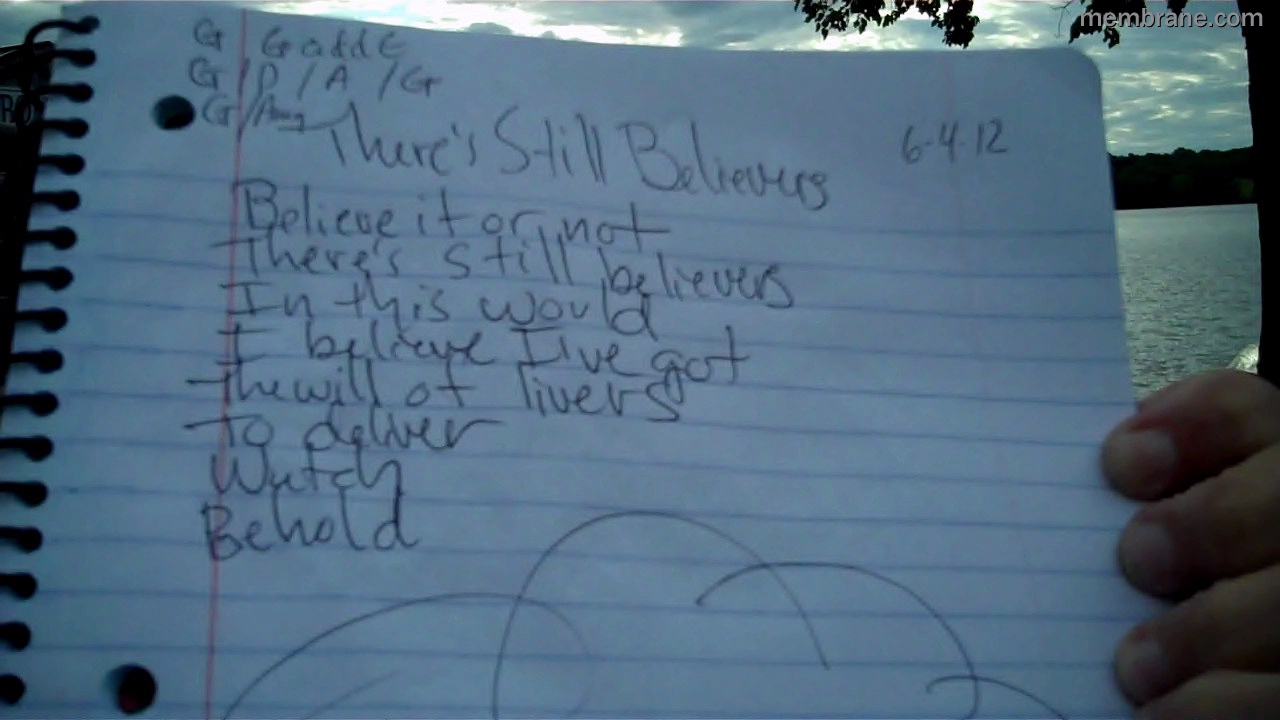 membrane.com
G GaddE
G/D/A/G
G/
There's Still Believers
6-4-12
Believe it or not
There's still believers
In this would
I believe I've got
the will of livers
to deliver
Watch
Behold
RO